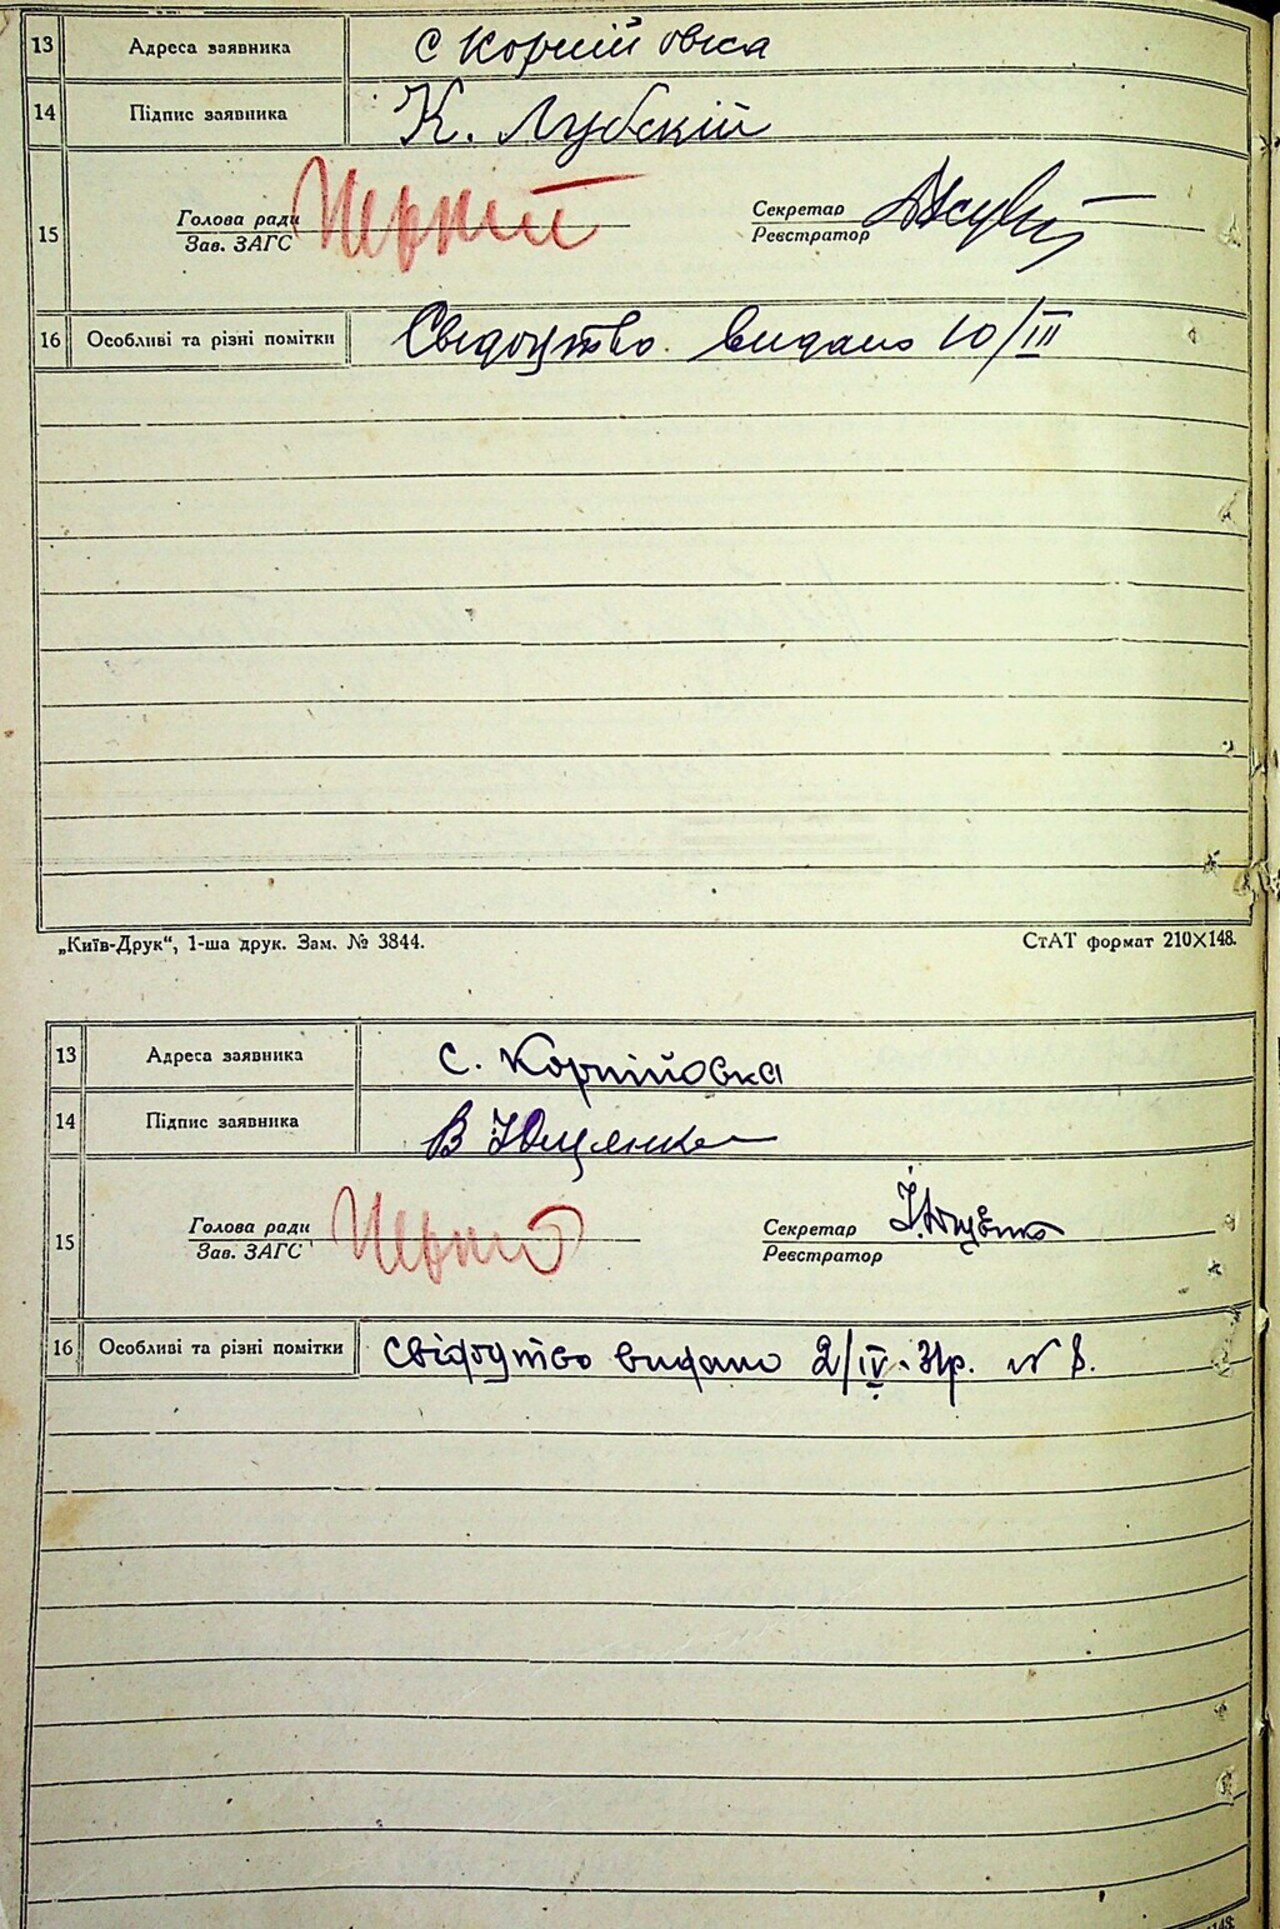 13 Адреса заявника с Корнійовка
14 Підпис заявника К. Лубскій
15 Голова ради Секретар
Зав. ЗАГС Реєстратор
16 Особливі та різні помітки Свідоцтво видано 10/III
„Київ-Друк“, 1-ша друк. Зам. № 3844. СтАТ формат 210×148.
13 Адреса заявника с. Корнійовка
14 Підпис заявника В Ющенко
15 Голова ради Секретар І. Ющенко
Зав. ЗАГС Реєстратор
16 Особливі та різні помітки свідоцтво видано 2/IV. 31р. № 8.